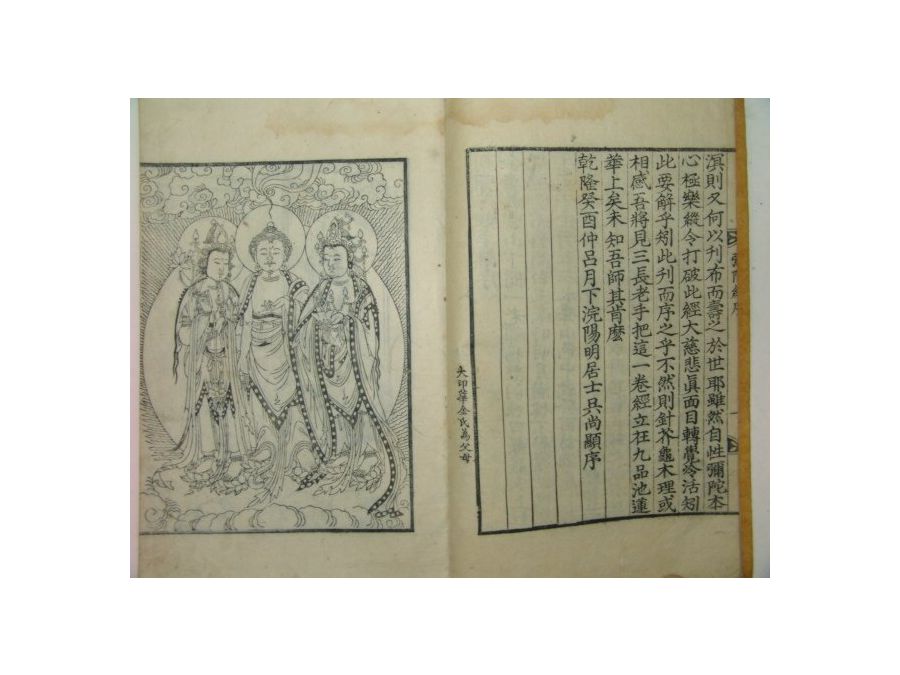 溟則又何以刊布而壽之於世耶雖然自性彌陀本
心極樂縱令打破此經大慈悲眞面目轉覺冷活矧
此要解乎矧此刊而序之乎不然則針芥龜木理或
相感吾將見三長老手把這一卷經立在九品池蓮
華上矣未知吾師其肯麽
乾隆癸酉仲呂月下浣陽明居士吳尙顯序
彌陀經序
一
大印華金氏爲父母